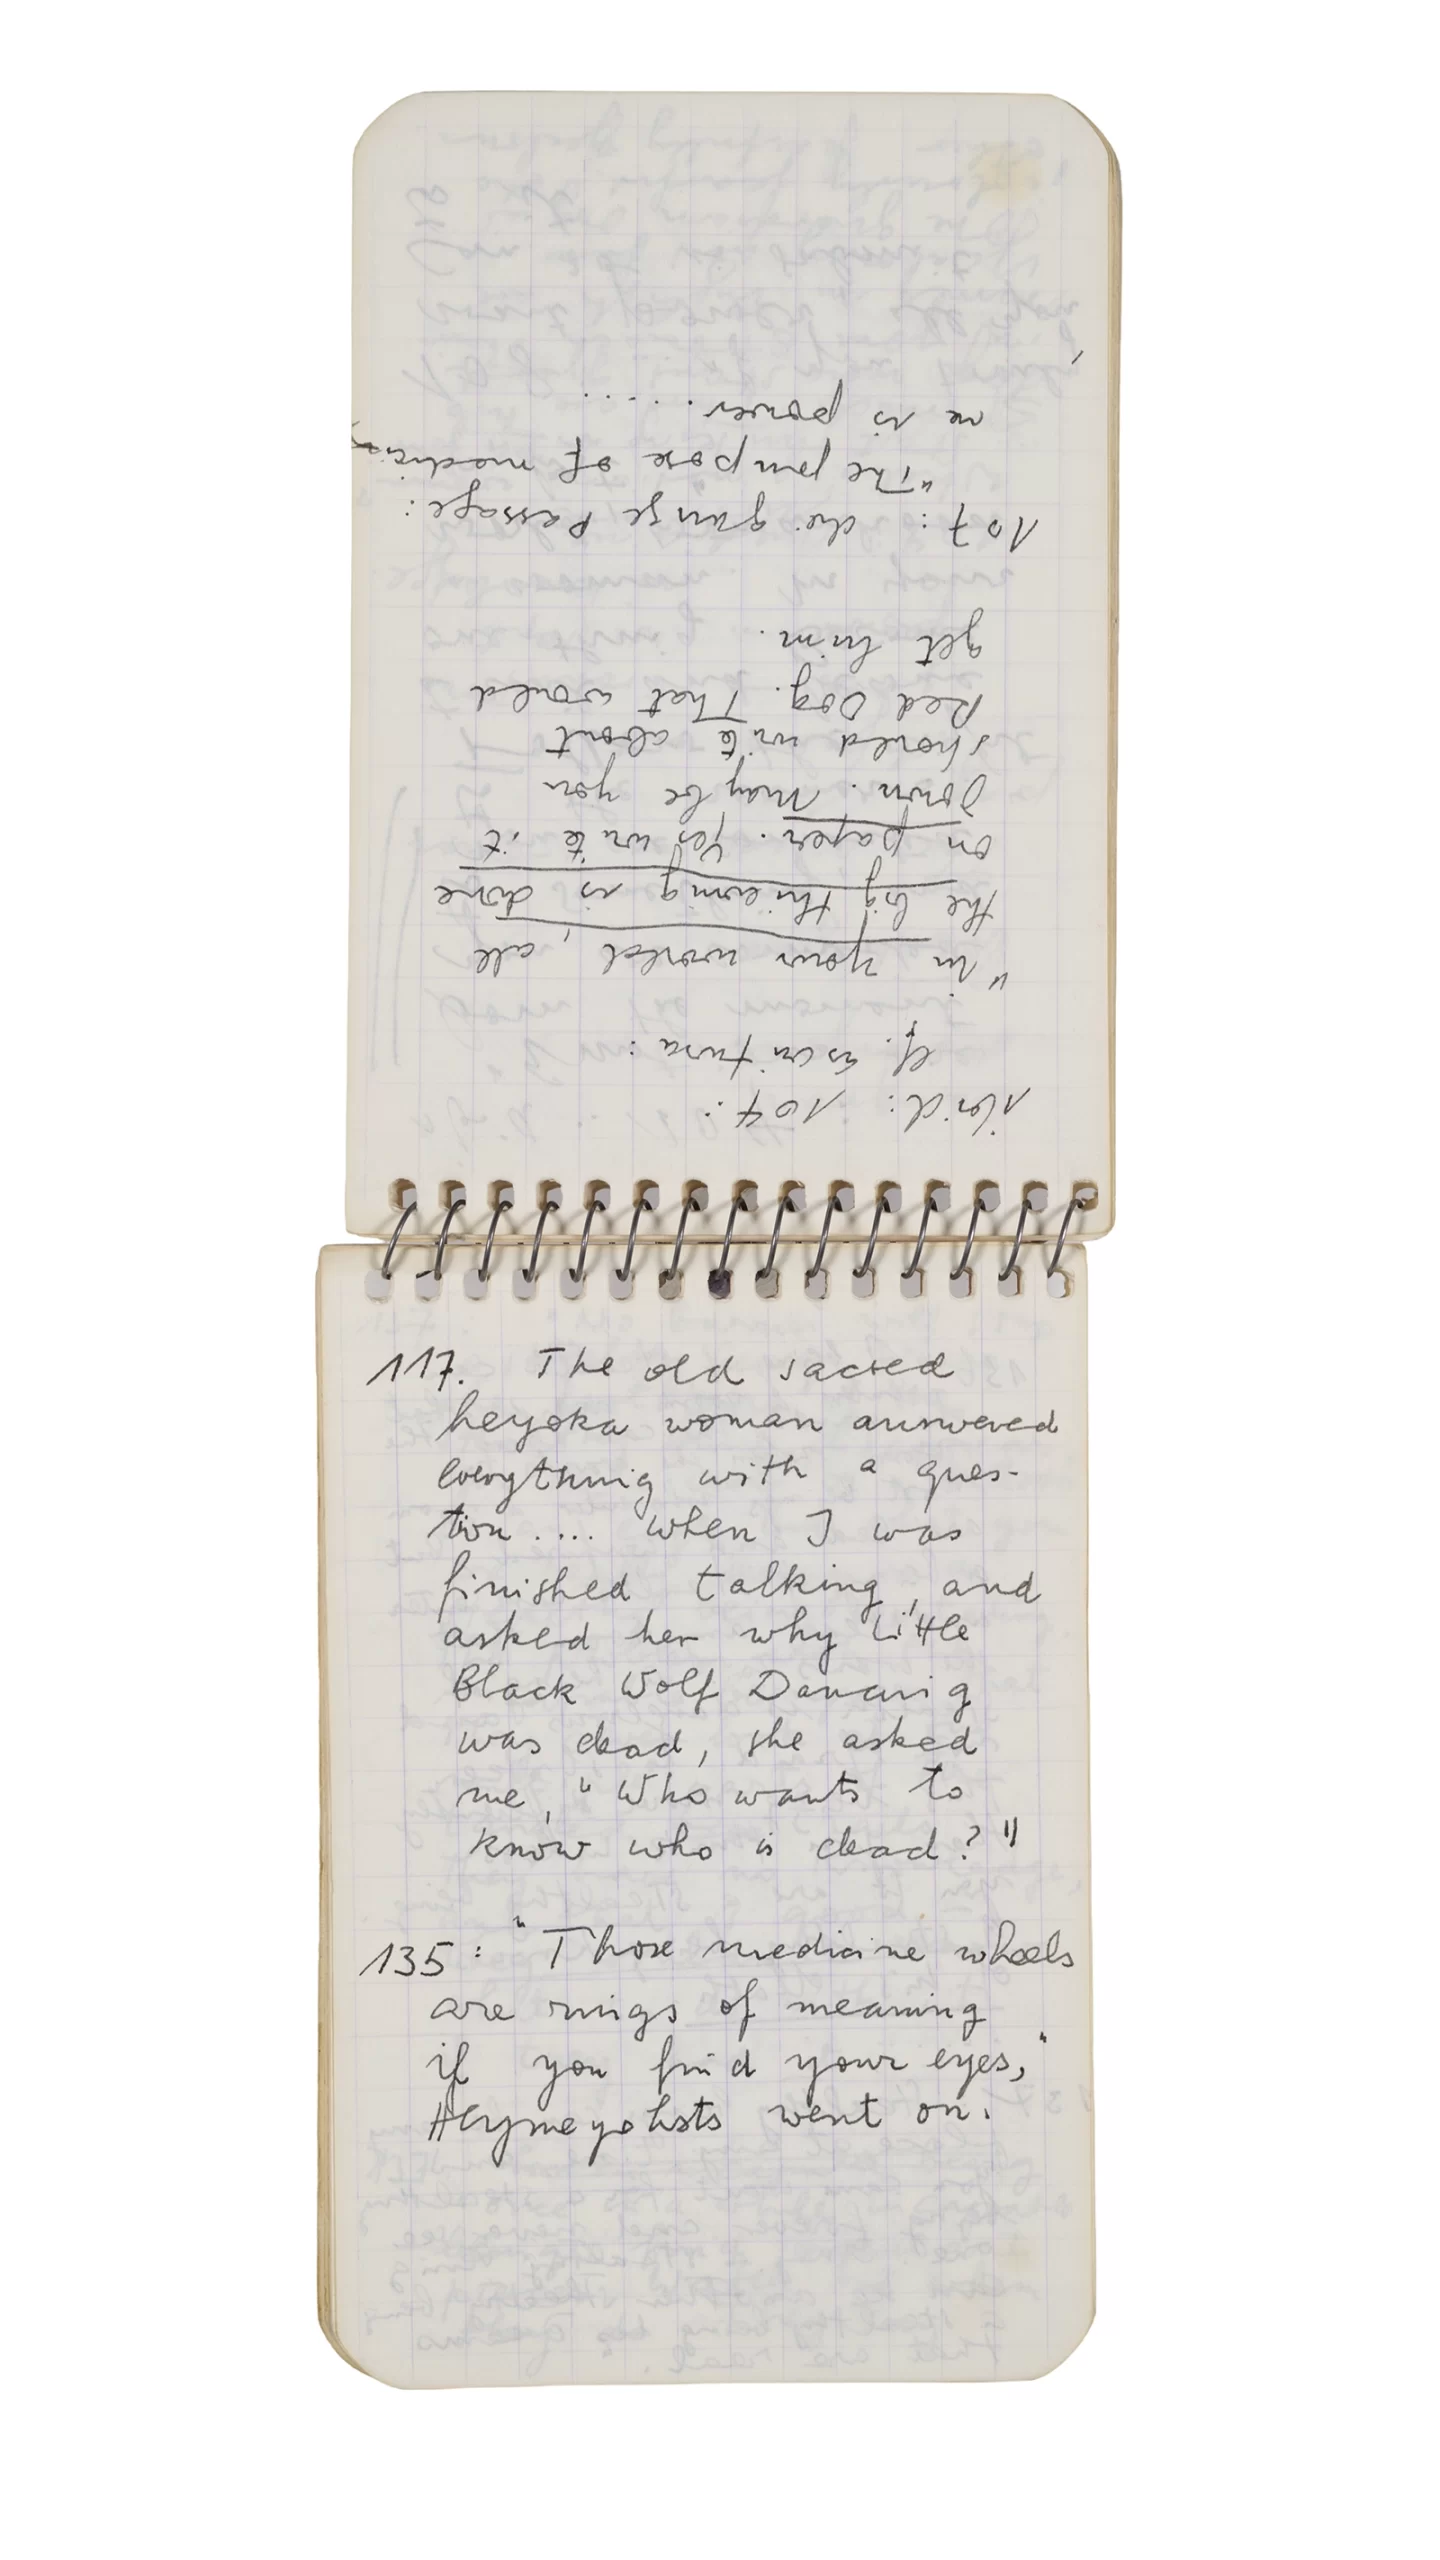 ibid: 107:
cf. escritura:
"In your world, all
the big thieving is done
on paper. Yes write it
down. Maybe you
should write about
Red Dog. That would
get him.
107: die ganze Passage:
"The purpose of medici-
ne is power.....
117. The old sacred
heyoka woman answered
everything with a ques-
tion.... when I was
finished talking, and
asked her why Little
Black Wolf Dancing
was dead, she asked
me, "Who wants to
know who is dead?"
135: "Those medicine wheels
are rings of meaning
if you find your eyes,"
Hyemeyohsts went on.